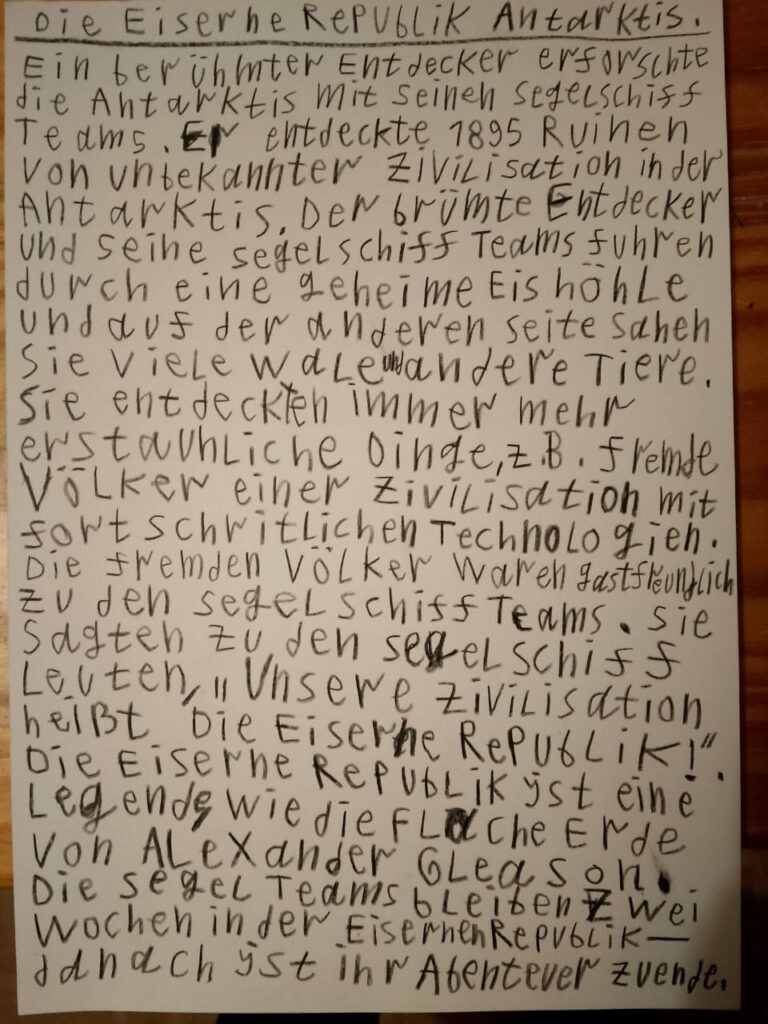 Die Eiserne Republik Antarktis.
Ein berühmter Entdecker erforschte
die Antarktis mit seinen segelschiff
Teams. Er entdeckte 1895 Ruinen
von unbekannter Zivilisation in der
Antarktis. Der brümte Entdecker
und seine segelschiff Teams fuhren
durch eine geheime Eishöhle
und auf der anderen seite sahen
sie viele Wale und andere Tiere.
Sie entdeckten immer mehr
erstaunliche Dinge, z.B. fremde
Völker einer Zivilisation mit
fortschritlichen Technologien.
Die fremden Völker waren gastfreundlich
zu den segelschiff Teams. Sie
sagten zu den segelschiff
Leuten, "Unsere Zivilisation
heißt Die Eiserne Republik!".
Die Eiserne Republik ist eine
Legende, wie die Flache Erde
von Alexander Gleason.
Die segel Teams bleiben zwei
Wochen in der Eisernen Republik —
danach ist ihr Abenteuer zuende.